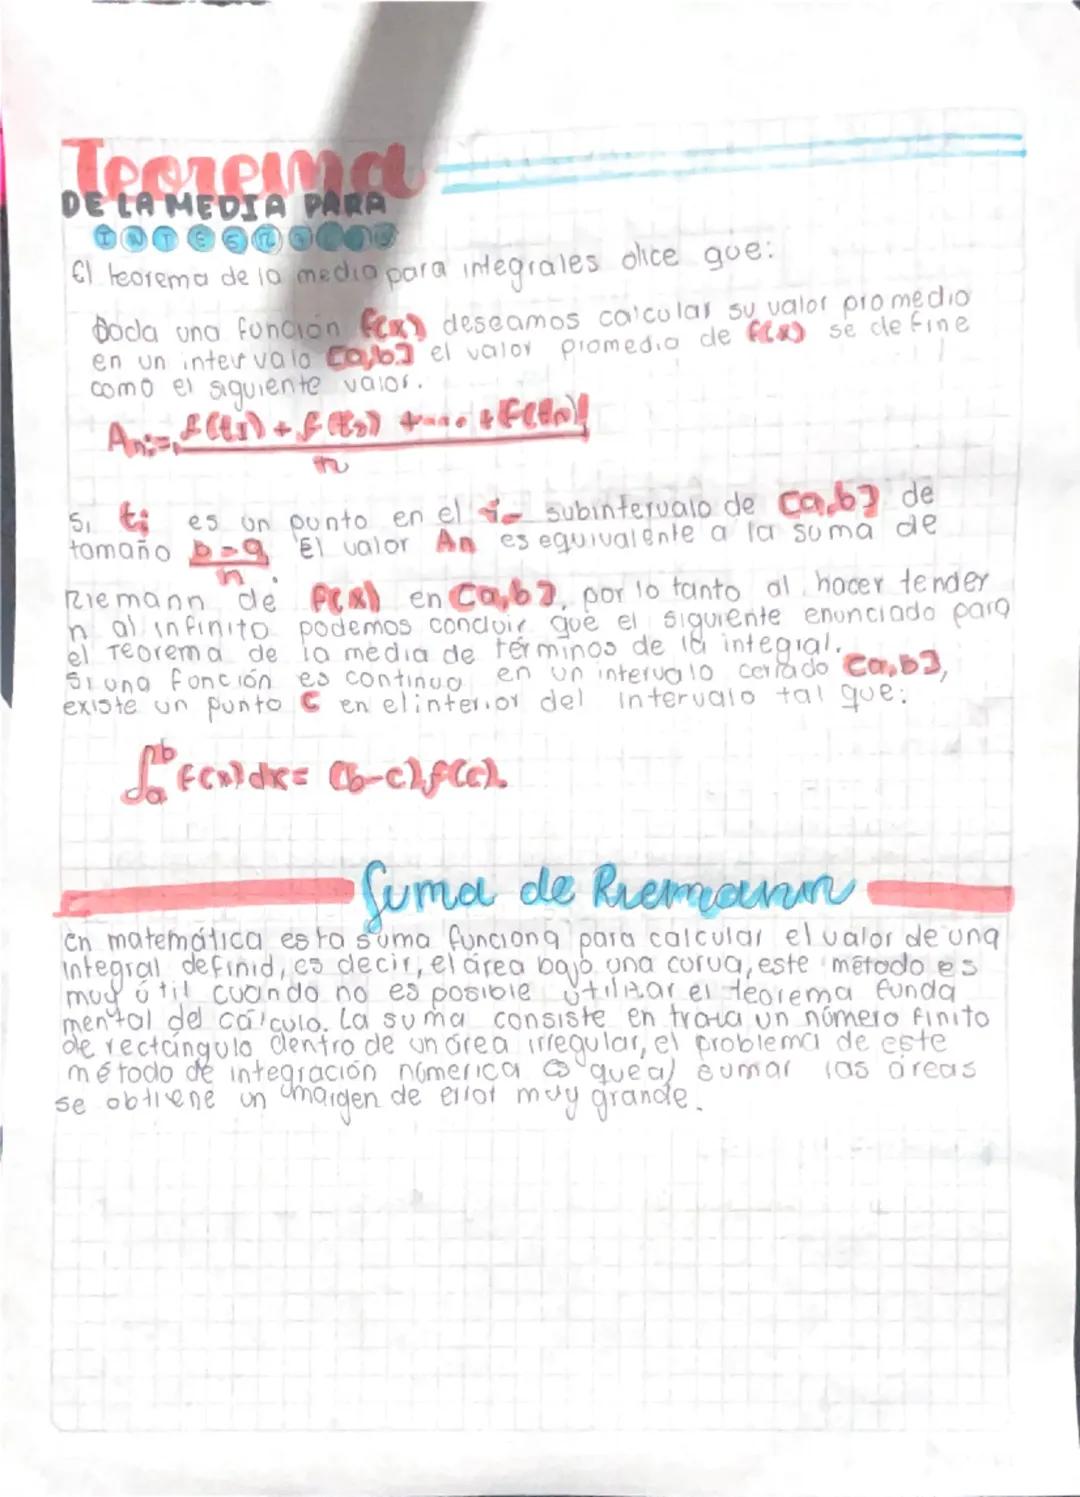 Teorema
DE LA MEDIA PARA
INTEGRALES
El teorema de la media para integrales dice que:
Dada una función f(x) deseamos calcular su valor promedio
en un intervalo [a,b] el valor promedio de f(x) se define
como el siguiente valor.
An:= f(t1) + f(t2) + ... + f(tn)
n
Si ti es un punto en el i- subintervalo de [a,b] de
tamaño b-a El valor An es equivalente a la suma de
n.
Riemann de f(x) en [a,b], por lo tanto al hacer tender
n al infinito podemos concluir que el siguiente enunciado para
el Teorema de la media de términos de la integral.
Si una función es continua en un intervalo cerrado [a,b],
existe un punto C en el interior del intervalo tal que:
∫ab f(x)dx = (b-c).f(c).
Suma de Riemann
En matemática esta suma funciona para calcular el valor de una
integral definid, es decir, el área bajo una curva, este método es
muy útil cuando no es posible utilizar el teorema funda
mental del cálculo. La suma consiste en traza un número finito
de rectángulo dentro de un área irregular, el problema de este
método de integración númerica es que al sumar las áreas
se obtiene un margen de error muy grande.